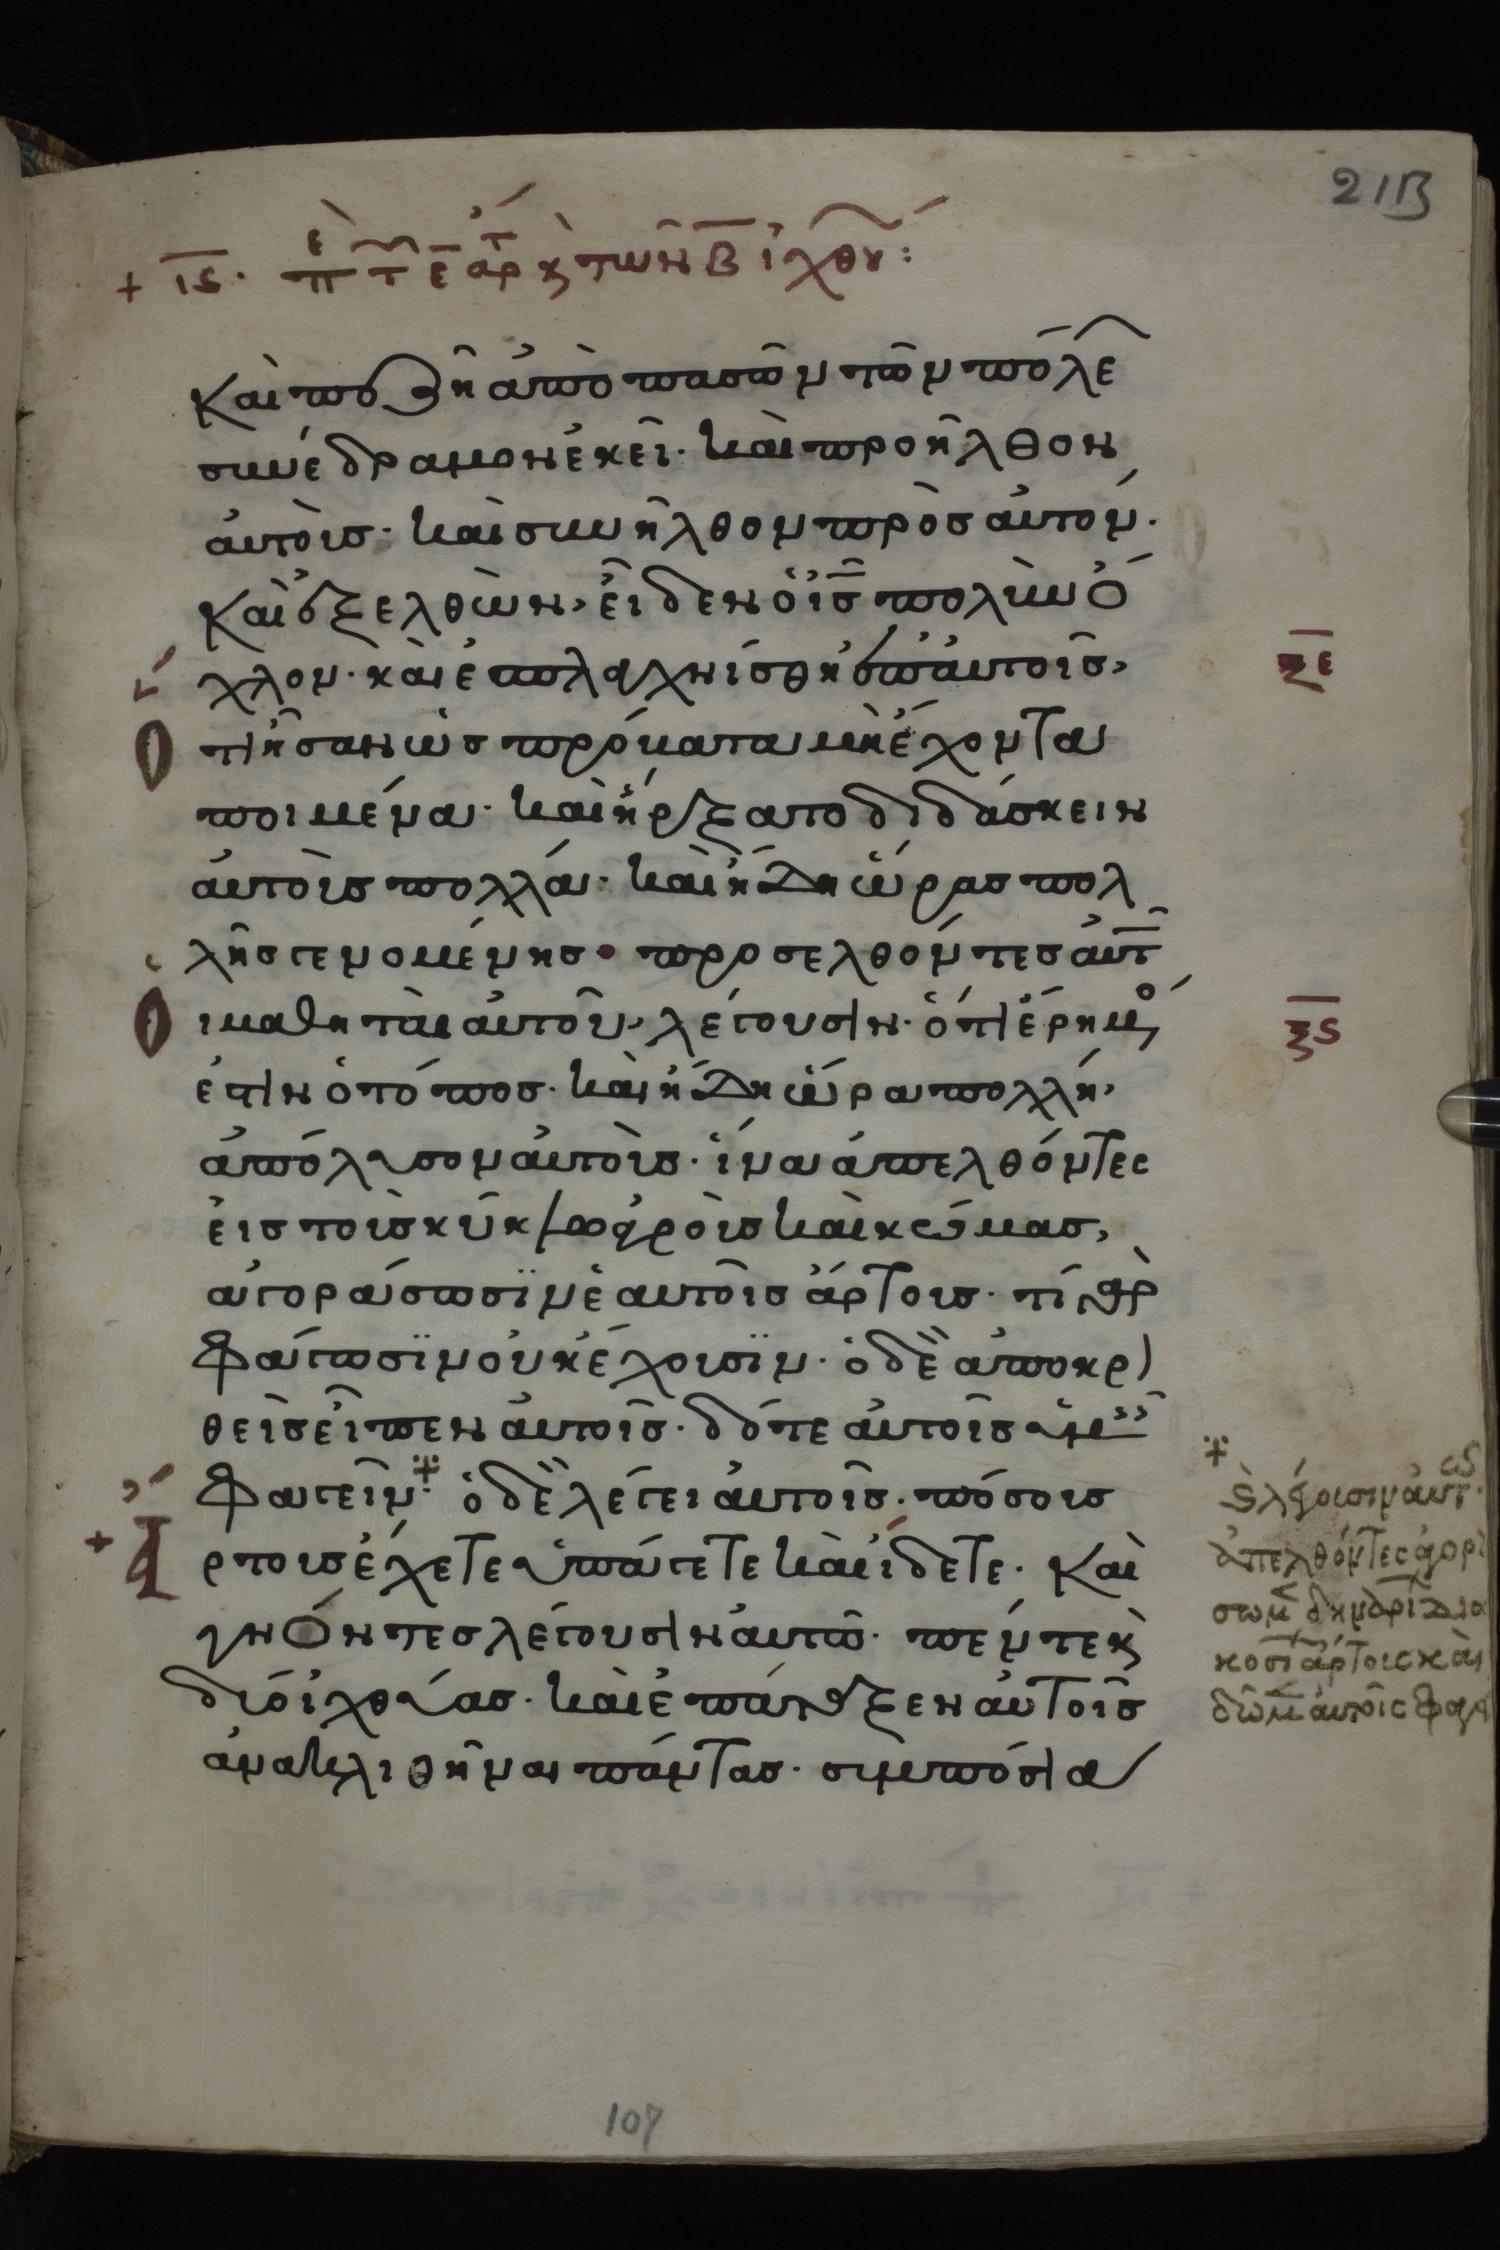 211β
+ ις· πε τ ε αρτ κ των β ιχθυ:
Καὶ πεζῆ ἀπὸ πασῶν τῶν πόλε
συνέδραμον ἐκεῖ· καὶ προῆλθον
αὐτοὺς· καὶ συνῆλθον πρὸς αὐτόν·
Καὶ ἐξελθὼν, εἶδεν ὁ ις πολὺν ὄ
χλον· καὶ ἐσπλαγχνίσθη ἐπ αὐτοῖς,
ξε
Ὅτι ἦσαν ὡς πρόβατα μὴ ἔχοντα
ποιμένα· καὶ ἤρξατο διδάσκειν
αὐτοὺς πολλά· καὶ ἤδη ὥρας πολ
λῆς γενομένης· προσελθόντες αὐτ
Οἱ μαθηταὶ αὐτοῦ, λέγουσιν· ὅτι ἔρημος
ξς
ἐστιν ὁ τόπος· καὶ ἤδη ὥρα πολλή,
ἀπόλυσον αὐτοὺς· ἵνα ἀπελθόντες
εἰς τοὺς κύκλω ἀγροὺς καὶ κώμας,
ἀγοράσωσϊν ἑαυτοῖς ἄρτους· τί γὰρ
φάγωσϊν οὐκ ἔχουσϊν· ὁ δὲ ἀποκρι
θεὶς εἶπεν αὐτοῖς· δότε αὐτοῖς ὑμ
φαγεῖν· ὁ δὲ λέγει αὐτοῖς· πόσους
ἄρτους ἔχετε ὑπάγετε καὶ ἴδετε· Καὶ
γνόντες λέγουσιν αὐτῶ· πέντε κ
δύο ἰχθύας· καὶ ἐπέταξεν αὐτοῖς
ἀνακλιθῆναι πάντας· συμπόσια
κ λέγουσιν αὐτω·
ἀπελθόντες ἀγορά
σωμ δηναρί δια
κοσί ἄρτους καὶ
δῶμ αὐτοῖς φαγ
107